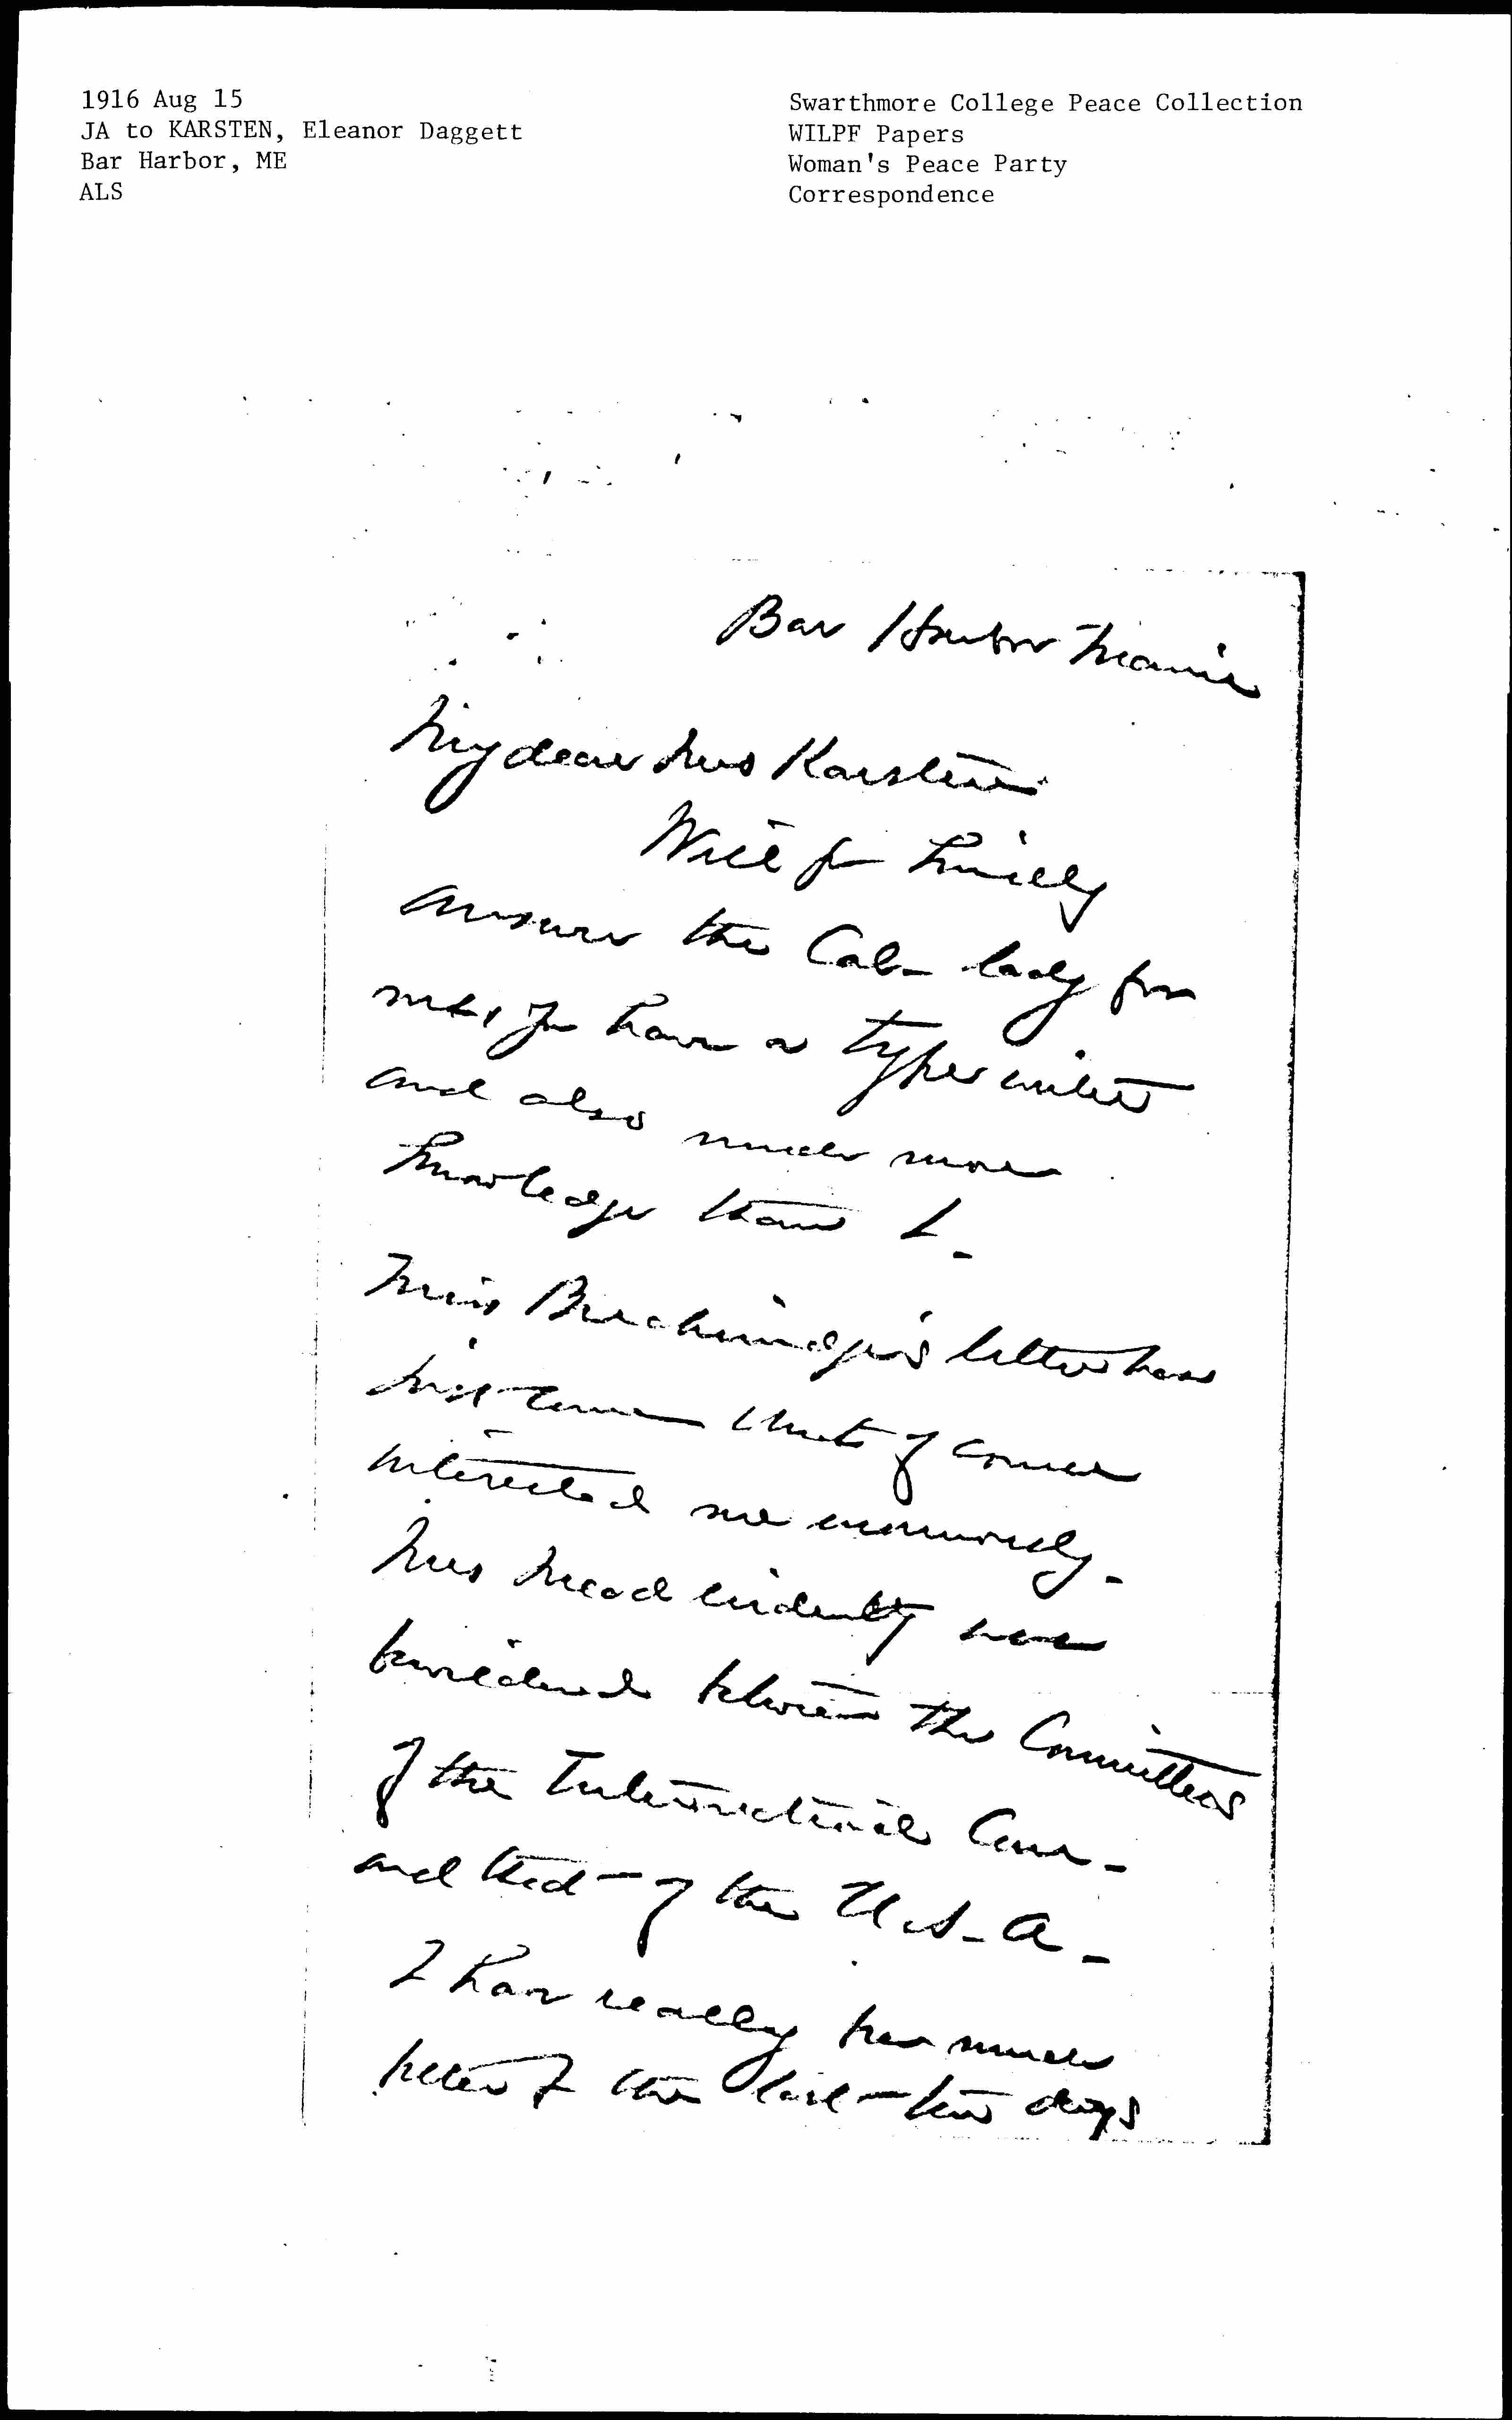 1916 Aug 15
JA to KARSTEN, Eleanor Daggett
Bar Harbor, ME
ALS
Swarthmore College Peace Collection
WILPF Papers
Woman's Peace Party
Correspondence
Bar Harbor Maine
My dear Mrs Karsten
Will you kindly
answer the Cal- lady for
me, you have a typewriter
and also much more
knowledge than I-
Miss Breckinridge's letter has
just come & of course
interested me enormously-
Mrs Mead evidently was
bewildered between the Committees
of the International Com-
and that of the U.S-A-
I have really been much
better the last few days